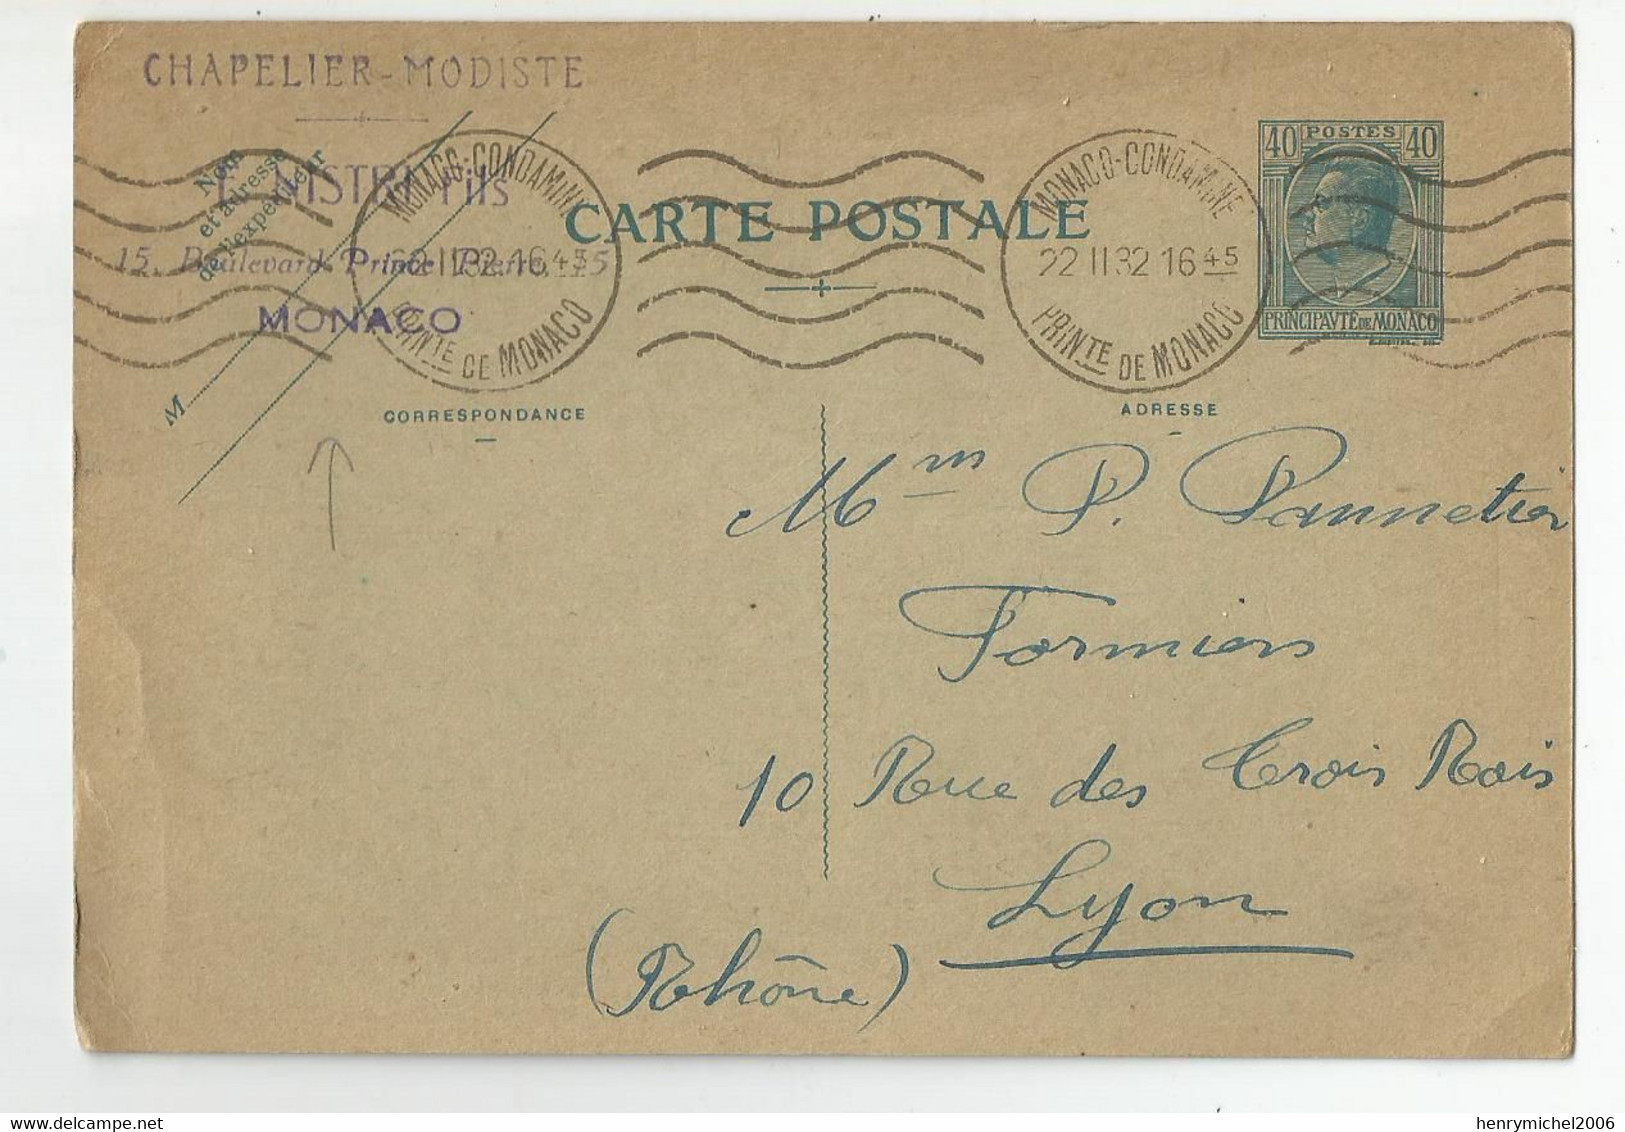 CHAPELIER-MODISTE
NISTRI Fils
15, Boulevard Prince Pierre, 15
MONACO
Nom
et adresse
de l'expéditeur
M
MONACO-CONDAMINE
22 II 32 16 45
PRINTE DE MONACO
CARTE POSTALE
MONACO-CONDAMINE
22 II 32 16 45
PRINTE DE MONACO
40 POSTES 40
PRINCIPAVTÉ DE MONACO
CORRESPONDANCE
ADRESSE
Mm P. Pannetier
Formiers
10 Rue des Trois Rois
Lyon
(Rhône)
henrymichel2006